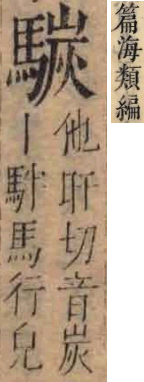 篇海類編
他肝切音炭
丨馬行皃